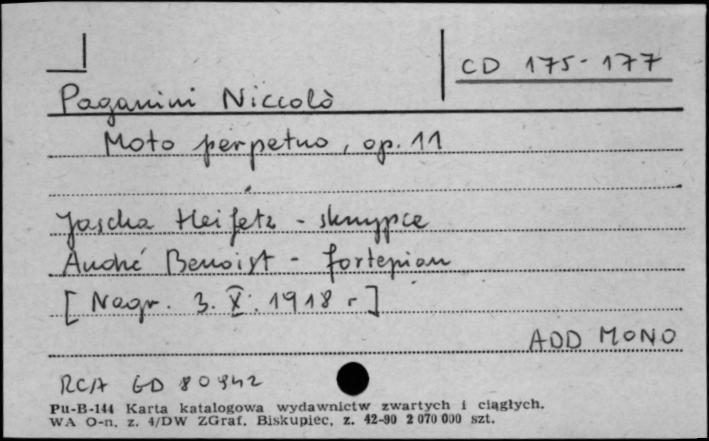 CD 175-177
Paganini Niccolò
Moto perpetuo, op. 11
Jascha Heifetz - skrzypce
André Benoist - fortepian
[Nagr. 3. X. 1918 r]
ADD MONO
RCA GD 80942
Pu-B-144 Karta katalogowa wydawnictw zwartych i ciągłych.
WA O-n. z. 4/DW ZGraf. Biskupiec, z. 42-90 2 070 000 szt.